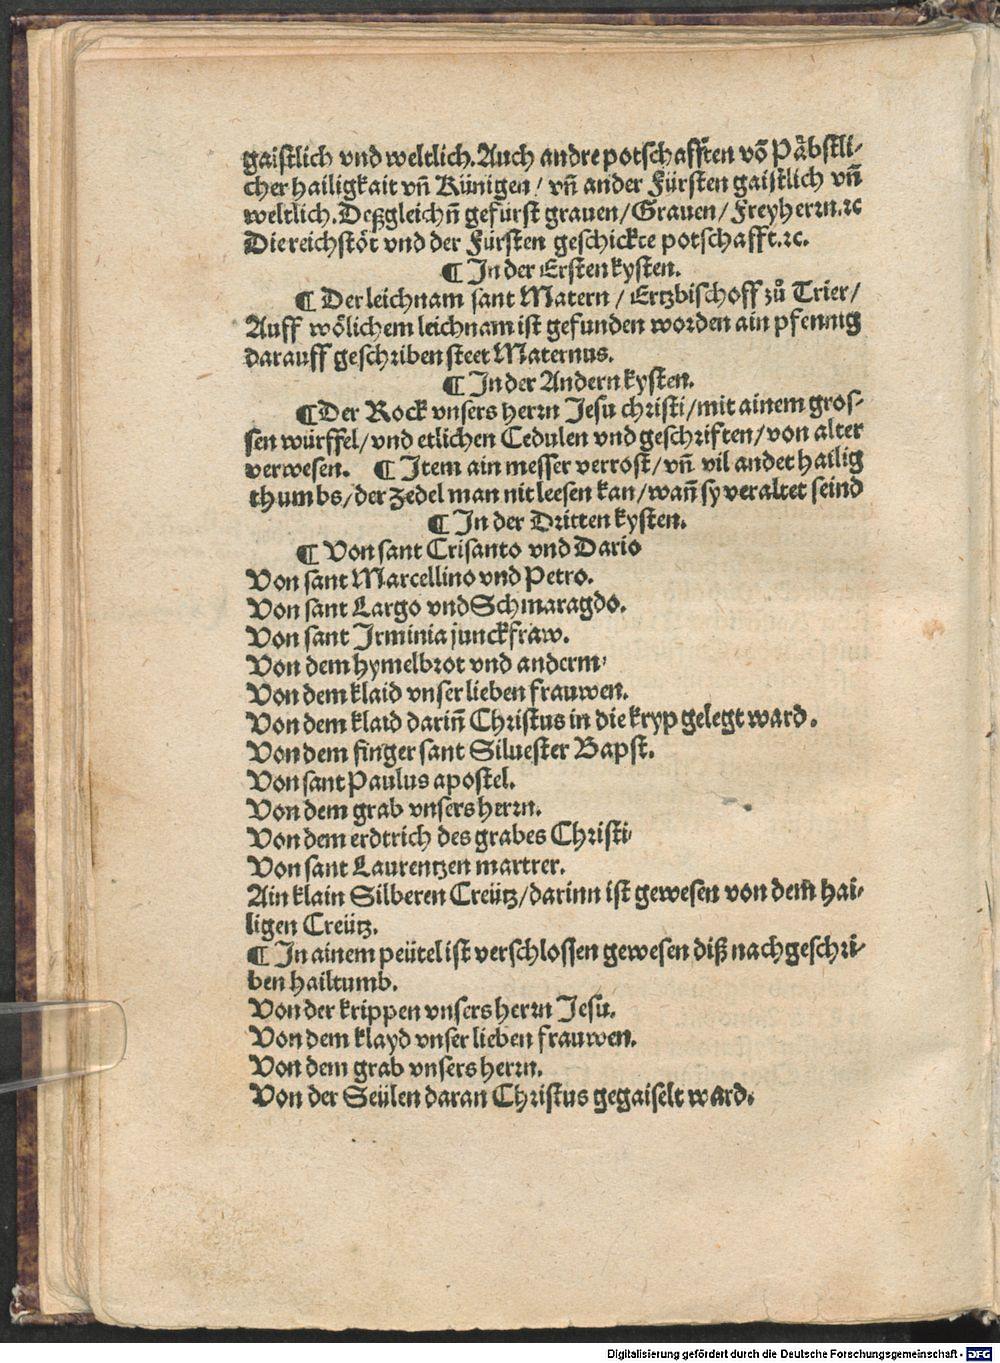 gaistlich vnd weltlich. Auch andre potschafften võ Påbstli-
cher hailigkait vñ Künigen / vñ ander Fürsten gaistlich vñ
weltlich. Deßgleichñ gefürst grauen / Grauen / Freyherrn.⁊c
Die reichstöt vnd der Fürsten geschickte potschafft.⁊c.
¶ In der Ersten kysten.
¶ Der leichnam sant Matern / Ertzbischoff zů Trier /
Auff wölichem leichnam ist gefunden worden ain pfennig
darauff geschriben steet Maternus.
¶ In der Andern kysten.
¶ Der Rock vnsers herrn Jesu christi / mit ainem gros-
sen würffel / vnd etlichen Cedulen vnd geschriften / von alter
verwesen. ¶ Item ain messer verrost / vñ vil andet hailig
thumbs / der zedel man nit leesen kan / wañ sy veraltet seind
¶ In der Dritten kysten.
¶ Von sant Crisanto vnd Dario
Von sant Marcellino vnd Petro.
Von sant Largo vnd Schmaragdo.
Von sant Irminia junckfraw.
Von dem hymelbrot vnd anderm.
Von dem klaid vnser lieben frauwen.
Von dem klaid dariñ Christus in die kryp gelegt ward.
Von dem finger sant Siluester Bapst.
Von sant Paulus apostel.
Von dem grab vnsers herrn.
Von dem erdtrich des grabes Christi.
Von sant Laurentzen martrer.
Ain klain Silberen Creütz / darinn ist gewesen von dem hai-
ligen Creütz.
¶ In ainem peütel ist verschlossen gewesen diß nachgeschri-
ben hailtumb.
Von der krippen vnsers herrn Jesu.
Von dem klayd vnser lieben frauwen.
Von dem grab vnsers herrn.
Von der Seülen daran Christus gegaiselt ward.
Digitalisierung gefördert durch die Deutsche Forschungsgemeinschaft - DFG